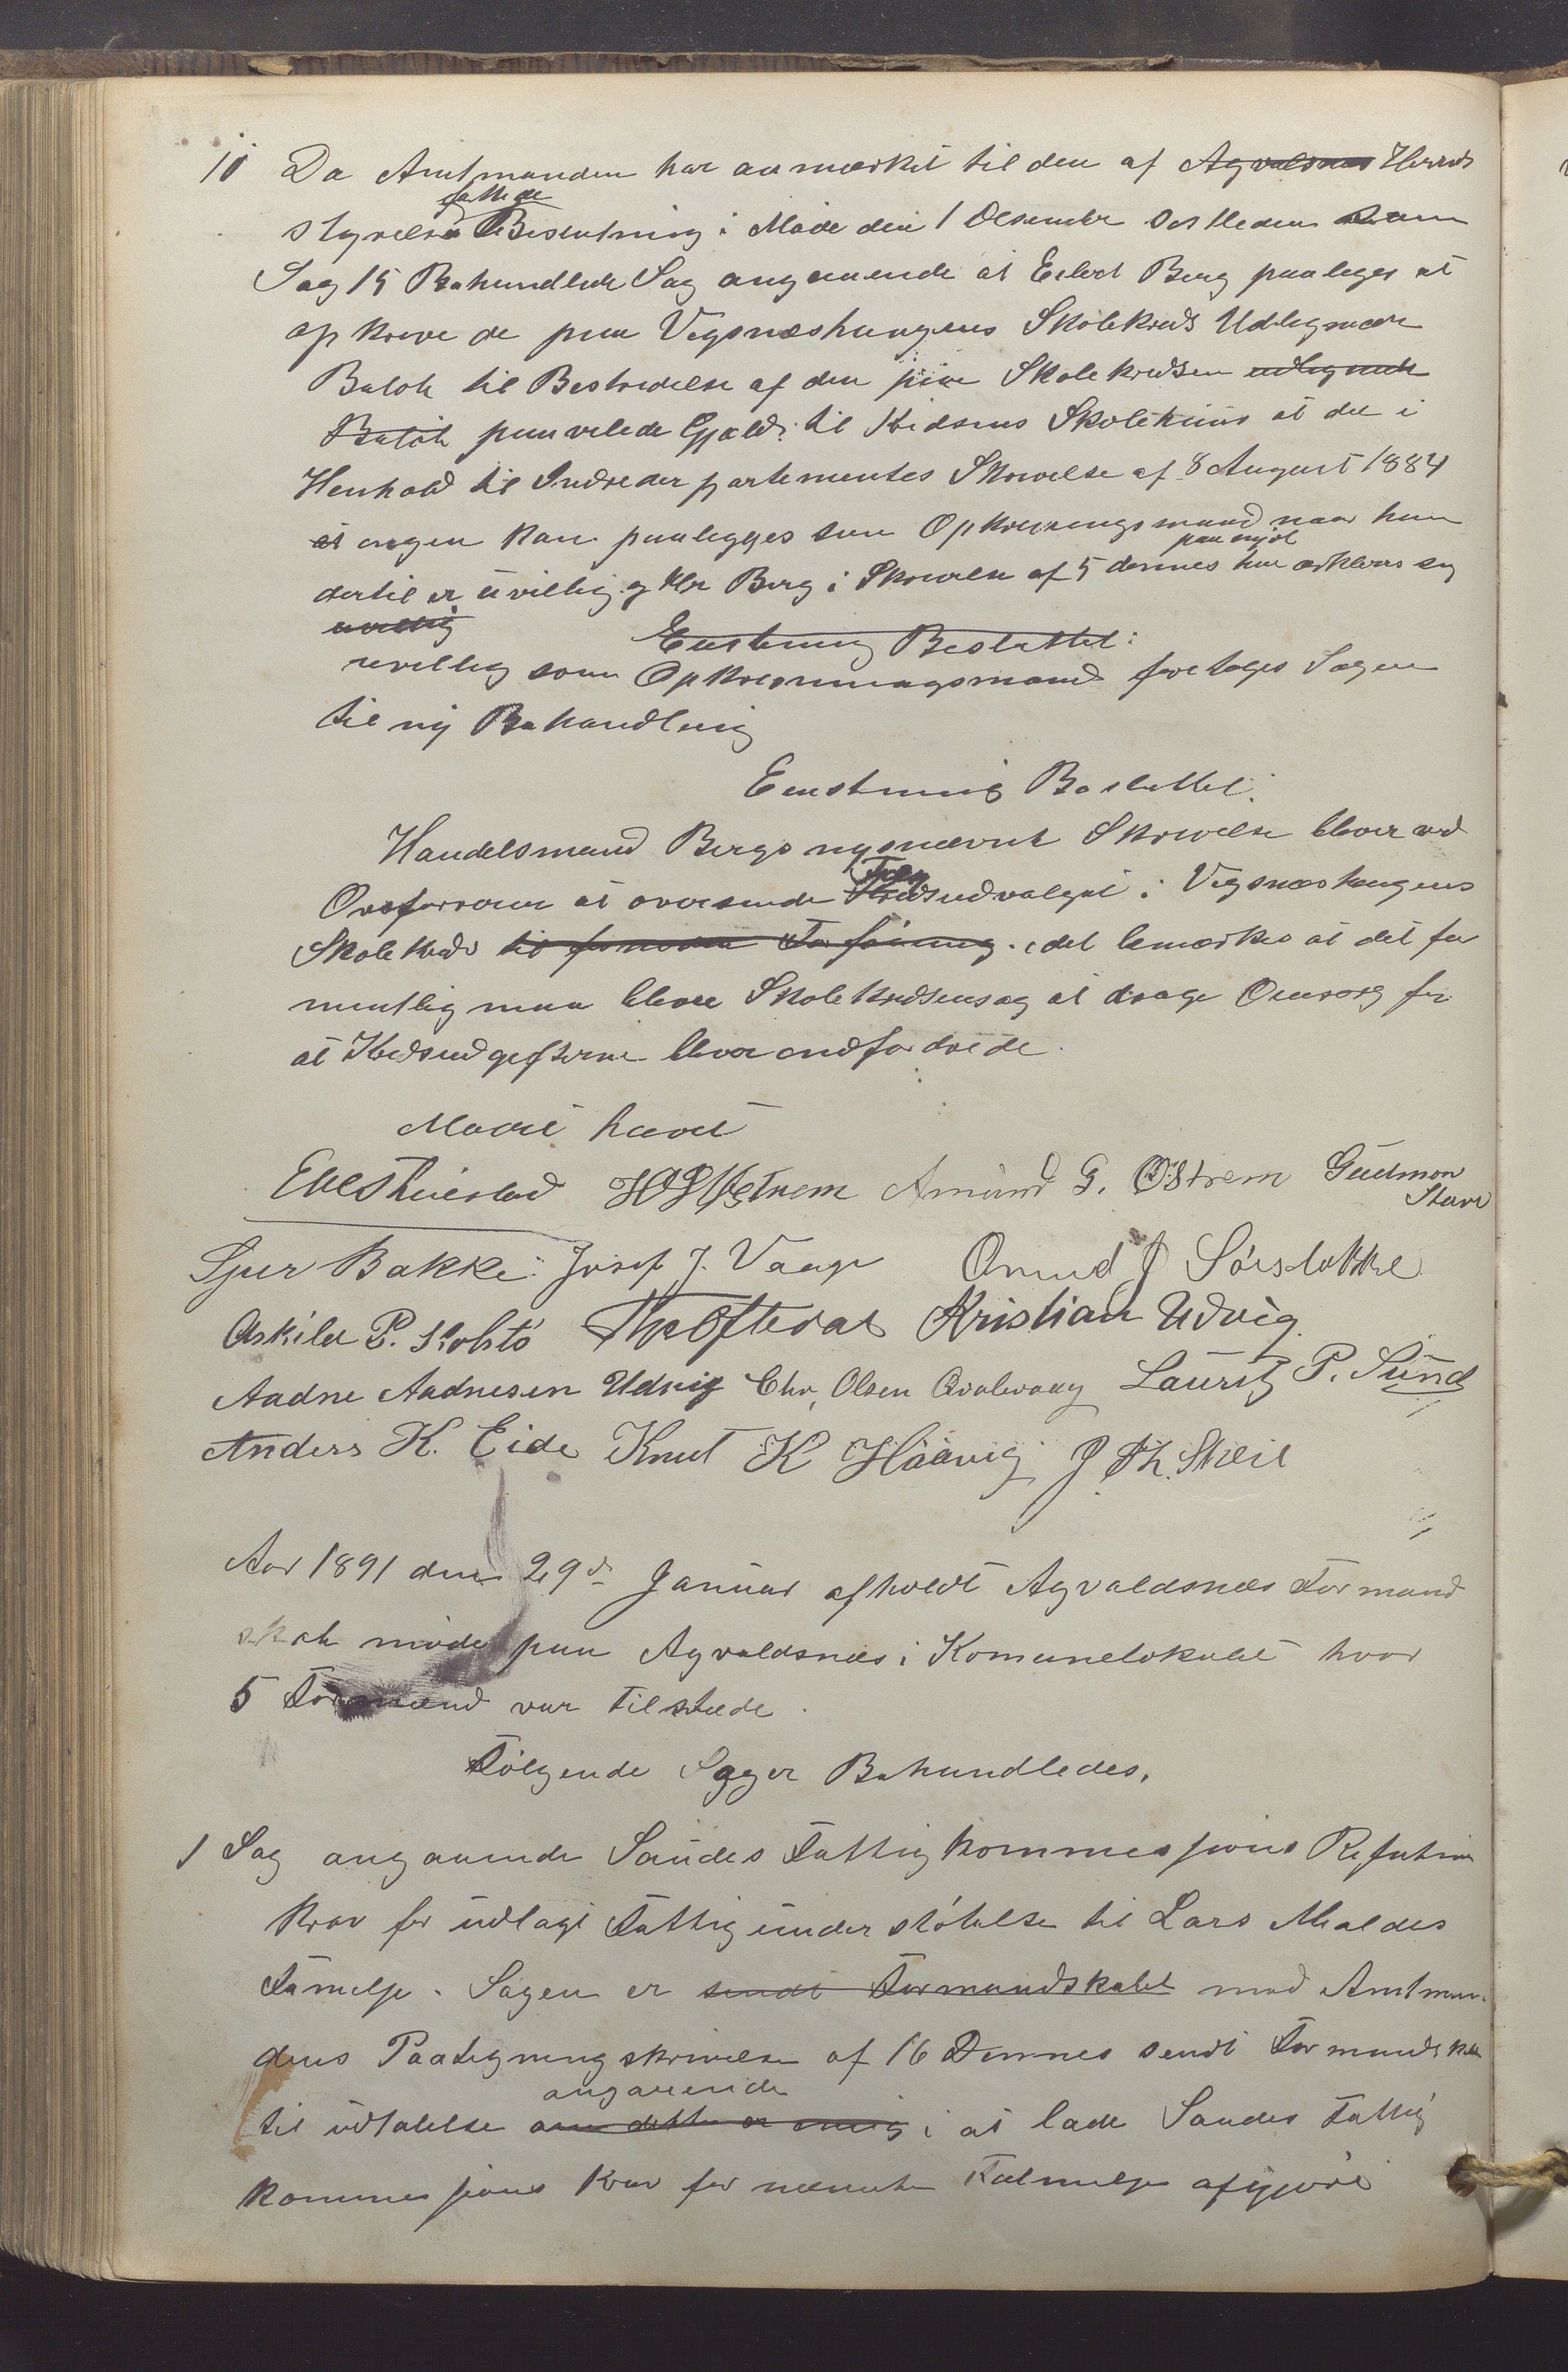 10 Da Amtmanden har anmærket til den af Agvaldsnes Herreds
fattede
styrelse Beslutning i Møde den 1 Desember sidstleden
Sag 15 Behandlede Sag angaaende at Eilert Berg paaleges at
opkreve de paa Vigsnæshaugens Skolekreds Udlignede
Beløb til Bestridelse af den paa Skolekredsen udlignede
Beløb paavilede Gjæld til Kredsens Skolehuus at der i
Henhold til Indredepartementes Skrivelse af 8 August 1884
at ingen kan paalegges som Opkrevningsmand naar han
paa nyt
dertil er uvillig og Hr Berg i Skrivelse af 5 dennes har erklæret sig
uvillig Enstemmig Besluttet:
uvillig som Opkrevningsmand foretages Sagen
til ny Behandling
Enstemmig Besluttet:
Handelsmand Bergs nysnævnte Skrivelse bliver ved
Tilsyn
Ordføreren at oversende Kredsudvalget i Vigsnæshaugens
Skolekreds til fornøden Forføining. det bemærkes at det for
mentlig maa blive Skolekredsens sag at drage Omsorg for
at Kredsudgifterne bliver indfordrede.
Mødet hævet
Amund G. Østrem Gudmon
Stave
Sjur Bakke. Josef J. Vaage Omund J Sørstokke
Askild P. Kolstø Th Oftedal Kristian Udvig.
Aadne Aadnesen Udvig Chr. Olsen Qvalevaag Lauritz P. Sund
Anders K. Eide Knut K Håavig J Th. Skeie
Aar 1891 den 29de Januar afholdt Agvaldsnes Formand
skab møde paa Agvaldsnes i Komunelokalet hvor
5 Formænd var tilstede.
Følgende Sager Behandledes.
1 Sag angaaende Saudes Fattigkommessjons Refutions
krav for udlagt Fattigunderstøtelse til Lars Maldes
Familje. Sagen er sendt Formandskabet med Amtman-
dens Paategningskrivelse af 16 Dennes sendt Formandskabet
angaaende
til udtalelse om dette er enig i at lade Saudes Fattig
kommessjons Krav for nævnte Familje afgjøre